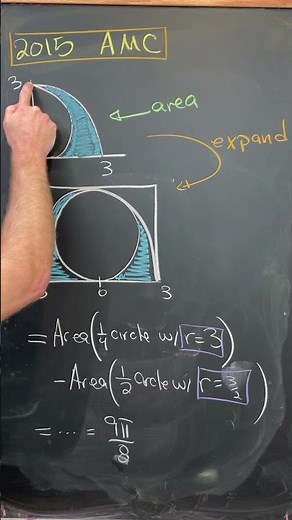 2015 AMC
3
area
3
expand
0 3
= Area(1/4 circle w/ r=3)
- Area(1/2 circle w/ r=3/2)
= ... = 9π/8